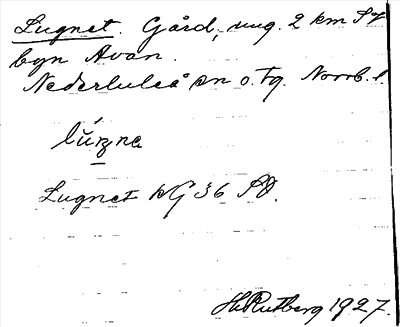 Lugnet. Gård, ung. 2 km SV
byn Avan.
Nederluleå sn o. tg. Norrb. l.
Lugnet kG 36 SV.
Hj. Rutberg 1927.